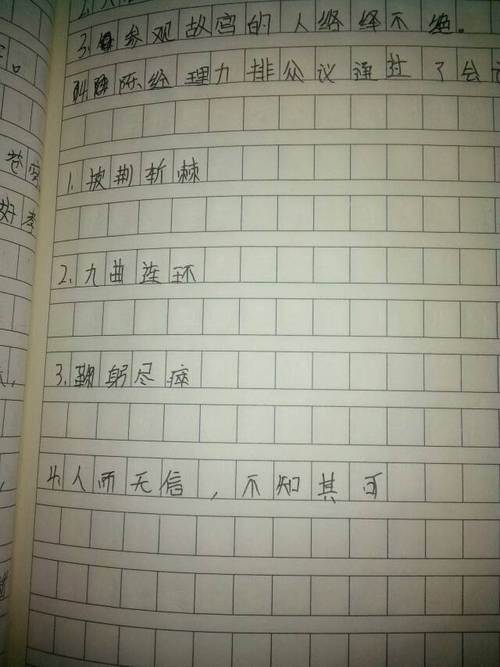 3.参观故宫的人络绎不绝。
陈经理力排众议通过了会
1.披荆斩棘
2.九曲连环
3.鞠躬尽瘁
4.人而无信，不知其可